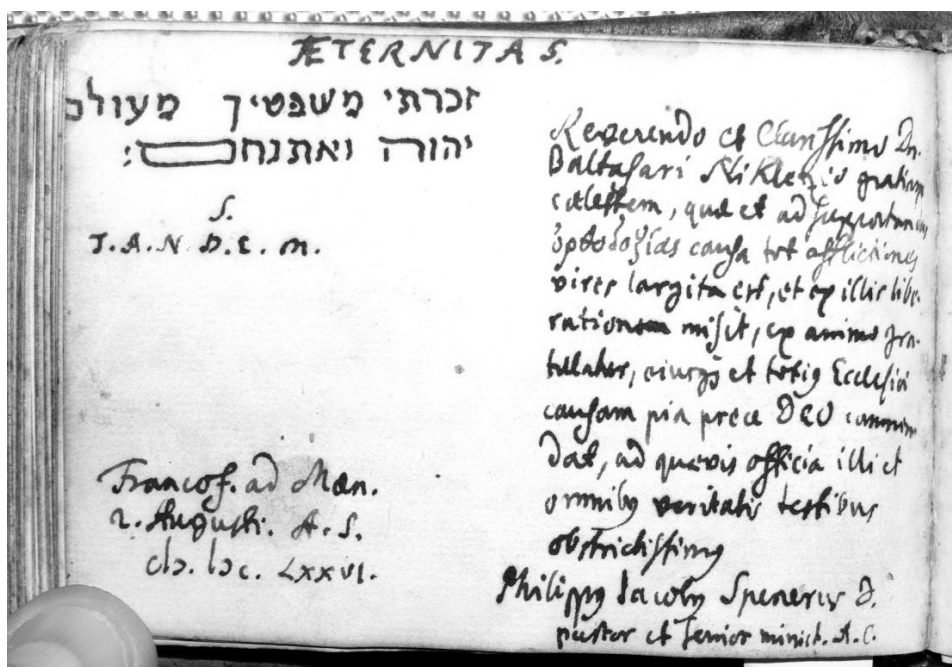 ÆTERNITAS.
זכרתי משפטיך מעולם
יהוה ואתנחם:
S.
T. A. N. D. E. M.
Francof. ad Mœn.
2. Augusti. A. S.
cIɔ. Iɔc. LXXVI.
Reverendo et Clarissimo Dn.
Baltasari Niklezio gratiam
cœlestem, quæ et ad supportandum
ὀρθοδοξίας causa tot afflictiones
vires largita est, et ex illis libe-
rationem misit, ex animo gra-
tulatur, eiusq3 et totiq Ecclesiæ
causam pia prece DEO commen
dat, ad quævis officia illi et
omnibq veritatis testibus
obstrictissimq
Philippq Jacobq Spenerus D.
pastor et senior minist. A. C.